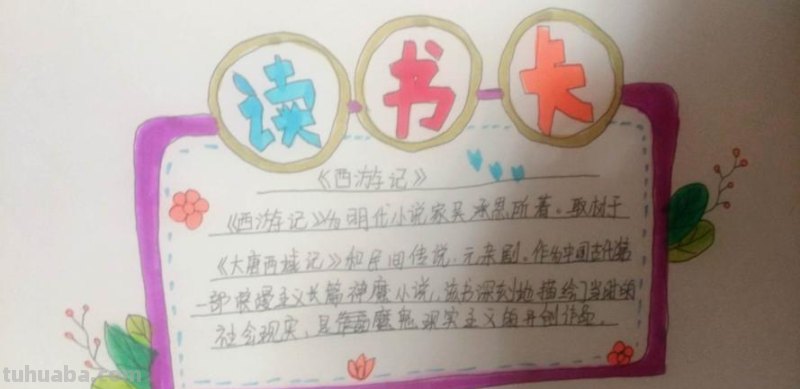 读书卡
《西游记》
《西游记》为明代小说家吴承恩所著。取材于
《大唐西域记》和民间传说、元杂剧。作为中国古代第
一部浪漫主义长篇神魔小说，该书深刻地描绘了当时的
社会现实，是魔幻现实主义的开创作品。
tuhuaba.com